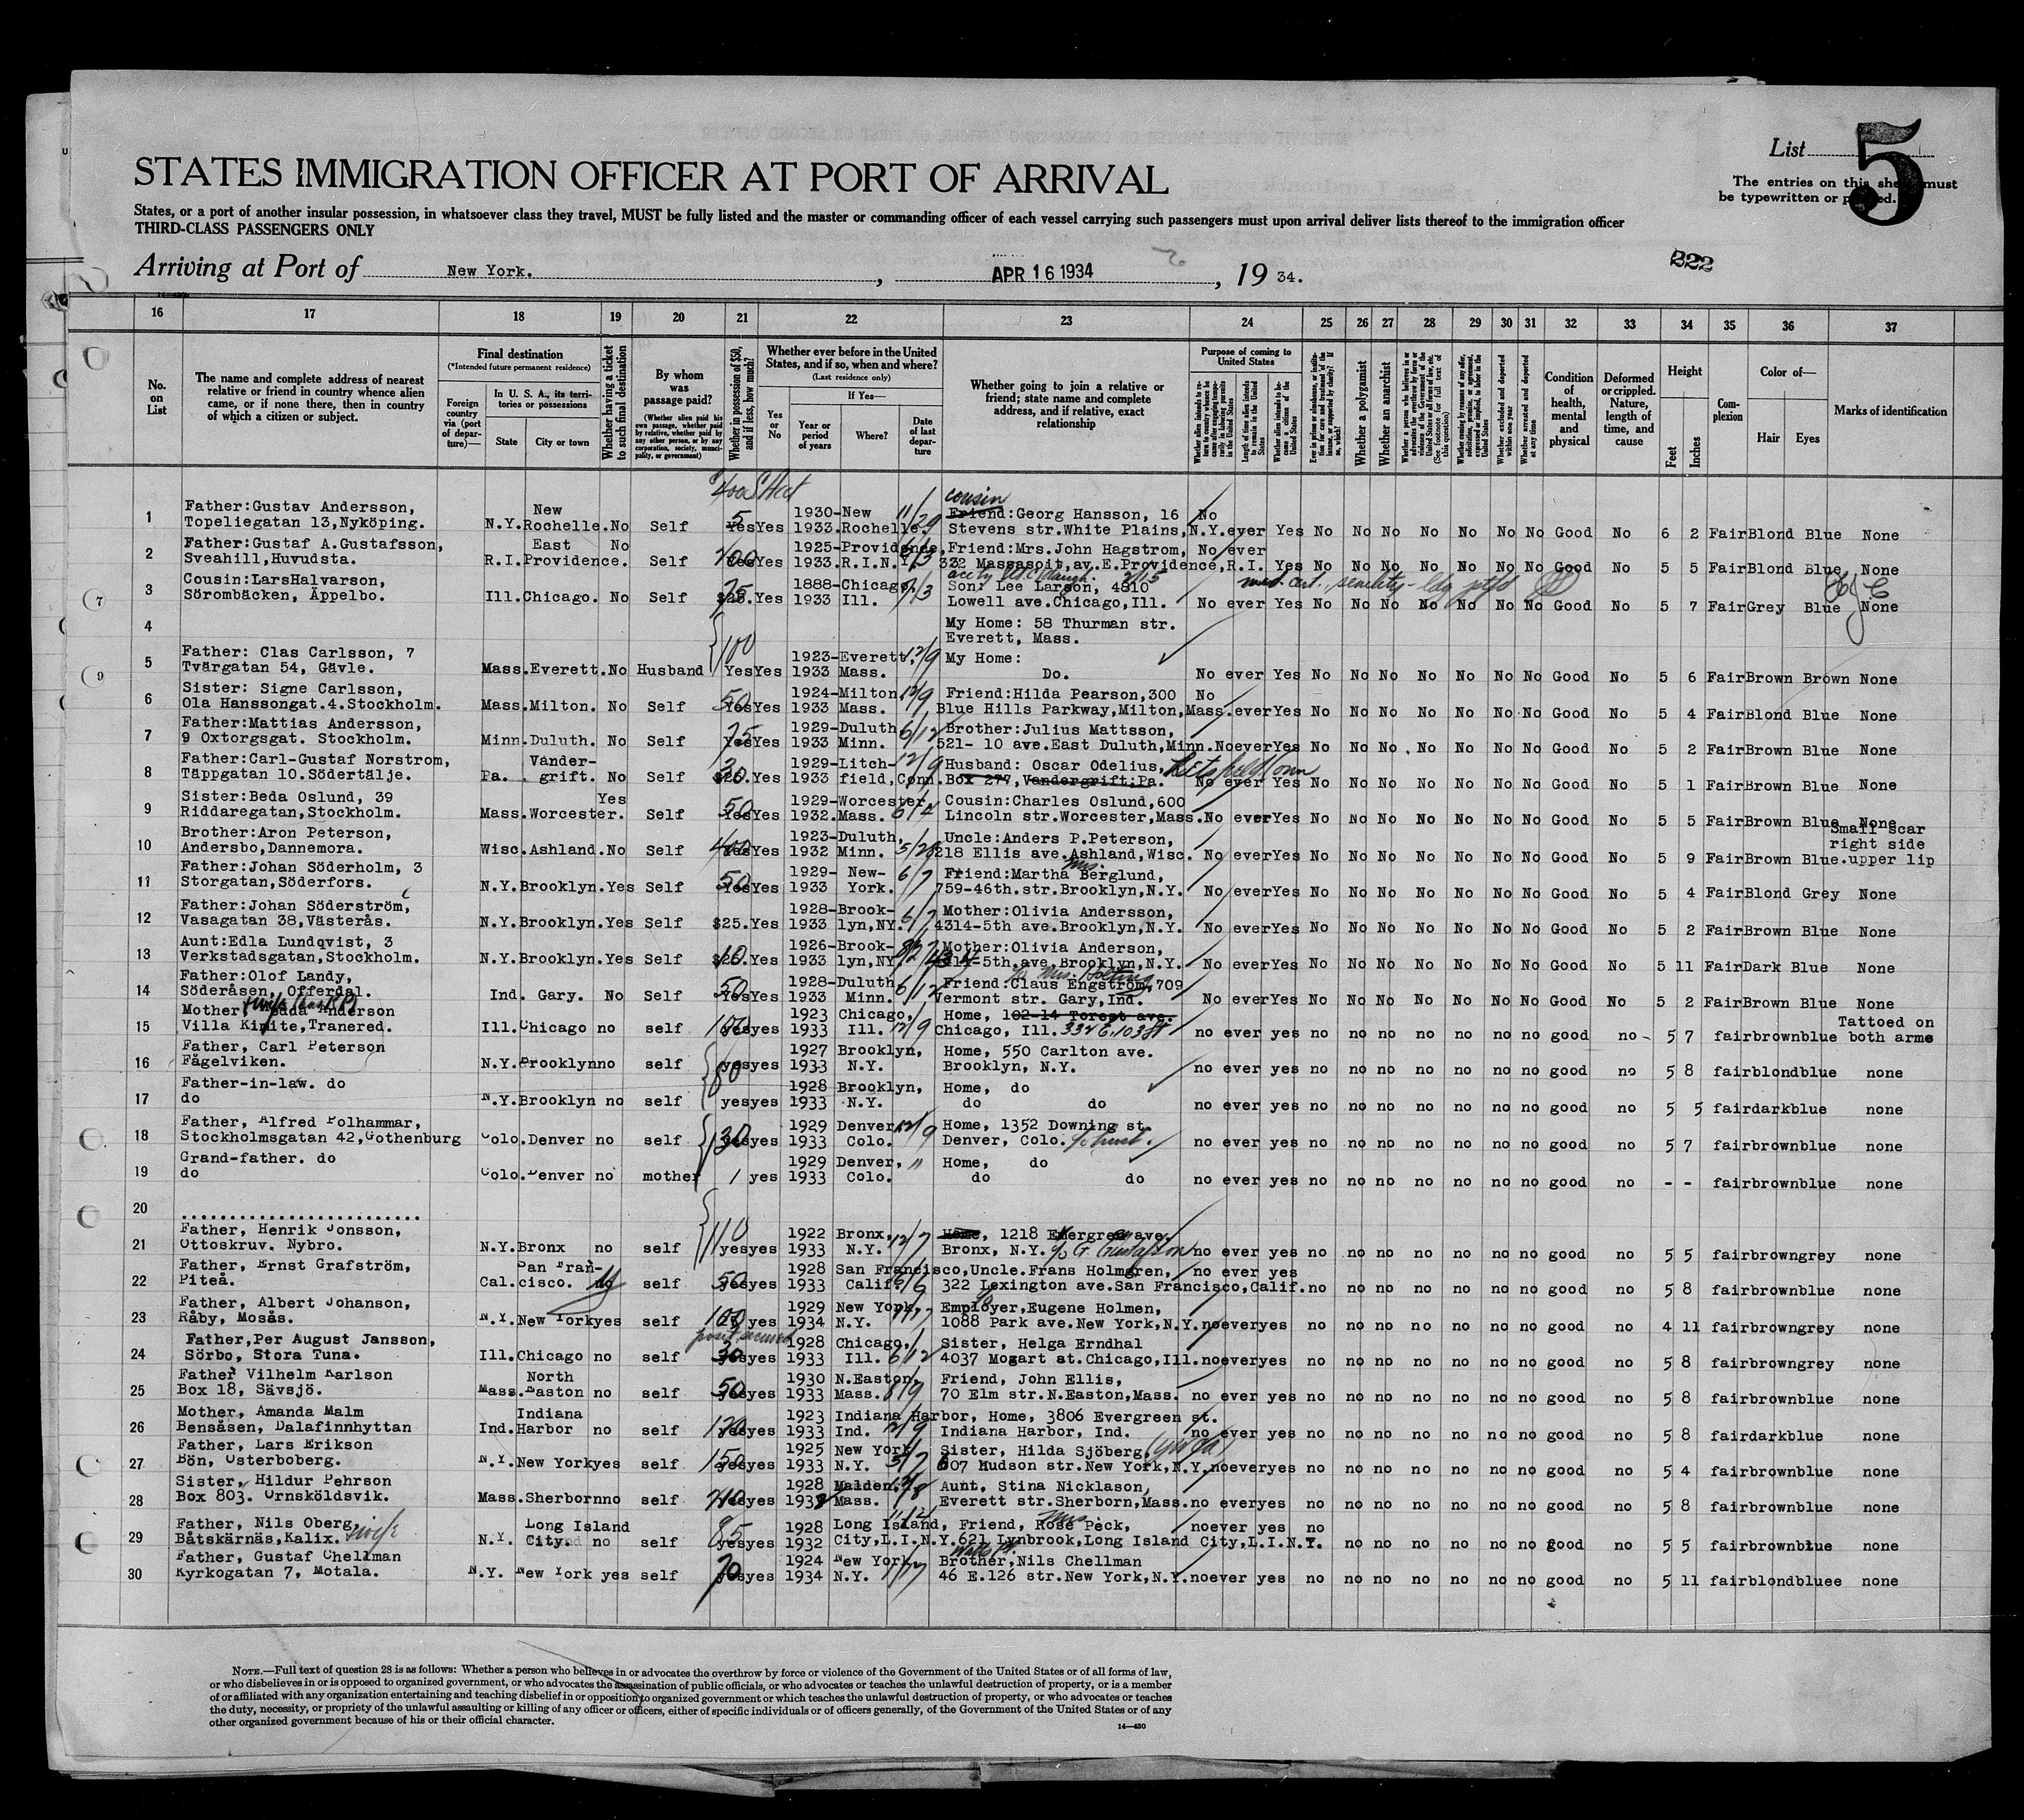 List 5
The entries on this sheet must
be typewritten or printed.
STATES IMMIGRATION OFFICER AT PORT OF ARRIVAL
States, or a port of another insular possession, in whatsoever class they travel, MUST be fully listed and the master or commanding officer of each vessel carrying such passengers must upon arrival deliver lists thereof to the immigration officer
THIRD-CLASS PASSENGERS ONLY
222
Arriving at Port of New York. , APR 16 1934 , 19 34.
16 17 18 19 20 21 22 23 24 25 26 27 28 29 30 31 32 33 34 35 36 37
No. on List
The name and complete address of nearest relative or friend in country whence alien came, or if none there, then in country of which a citizen or subject.
Final destination
(*Intended future permanent residence)
Foreign country via (port of departure)—
In U. S. A., its territories or possessions
State
City or town
Whether having a ticket to such final destination
By whom was passage paid?
(Whether alien paid his own passage, whether paid by relative, whether paid by any other person, or by any corporation, society, municipality, or government)
Whether in possession of $50, and if less, how much?
Whether ever before in the United States, and if so, when and where?
(Last residence only)
Yes or No
If Yes—
Year or period of years
Where?
Date of last departure
Whether going to join a relative or friend; state name and complete address, and if relative, exact relationship
Purpose of coming to United States
Whether a polygamist
Whether an anarchist
Condition of health, mental and physical
Deformed or crippled. Nature, length of time, and cause
Height
Feet
Inches
Complexion
Color of—
Hair
Eyes
Marks of identification
cousin
1 Father:Gustav Andersson, New 1930-New 11/29 Friend:Georg Hansson, 16 No
Topeliegatan 13,Nyköping. N.Y.Rochelle.No Self Yes Yes 1933.Rochelle. Stevens str.White Plains,N.Y.ever Yes No No No No No No No Good No 6 2 Fair Blond Blue None
2 Father:Gustaf A.Gustafsson, East No 1925-Providence, Friend:Mrs.John Hagstrom, No ever
Sveahill,Huvudsta. R.I.Providence. Self Yes Yes 1933.R.I. 332 Massasoit,av.E.Providence,R.I. Yes No No No No No No No Good No 5 5 Fair Blond Blue None
3 Cousin:LarsHalvarson, 75 1888-Chicago, Son: Lee Larson, 4810
Sörombäcken, Äppelbo. Ill.Chicago. No Self $25. Yes 1933 Ill. Lowell ave.Chicago,Ill. No ever Yes No No No No No No No Good No 5 7 Fair Grey Blue None
4 My Home: 58 Thurman str.
Everett, Mass.
5 Father: Clas Carlsson, 7 100 1923-Everett, 12/9 My Home:
Tvärgatan 54, Gävle. Mass.Everett.No Husband Yes Yes 1933 Mass. Do. No ever Yes No No No No No No No Good No 5 6 Fair Brown Brown None
6 Sister: Signe Carlsson, 50 1924-Milton 12/9 Friend:Hilda Pearson,300 No
Ola Hanssongat.4.Stockholm. Mass.Milton. No Self Yes Yes 1933 Mass. Blue Hills Parkway,Milton,Mass.ever Yes No No No No No No No Good No 5 4 Fair Blond Blue None
7 Father:Mattias Andersson, 75 1929-Duluth 6/12 Brother:Julius Mattsson,
9 Oxtorgsgat. Stockholm. Minn.Duluth. No Self Yes Yes 1933 Minn. 521- 10 ave.East Duluth,Minn.No ever Yes No No No No No No No Good No 5 2 Fair Brown Blue None
8 Father:Carl-Gustaf Norstrom, Vander- 1929-Litch- 12/9 Husband: Oscar Odelius, Litchfield Conn
Täppgatan 10.Södertälje. Pa. grift. No Self Yes 1933 field,Conn. Box 277,Vandergrift;Pa. No ever Yes No No No No No No No Good No 5 1 Fair Brown Blue None
9 Sister:Beda Oslund, 39 Yes 50 1929-Worcester Cousin:Charles Oslund,600
Riddaregatan,Stockholm. Mass.Worcester. Self Yes Yes 1932.Mass. Lincoln str.Worcester,Mass.No ever Yes No No No No No No No Good No 5 5 Fair Brown Blue None
10 Brother:Aron Peterson, 400 1923-Duluth, 5/28 Uncle:Anders P.Peterson, Small scar
Andersbo,Dannemora. Wisc.Ashland.No Self Yes Yes 1932 Minn. 218 Ellis ave.Ashland,Wisc. No ever Yes No No No No No No No Good No 5 9 Fair Brown Blue. right side upper lip
11 Father:Johan Söderholm, 3 50 1929- New- 6/7 Friend:Martha Mrs. Berglund,
Storgatan,Söderfors. N.Y.Brooklyn.Yes Self Yes Yes 1933 York. 759-46th.str.Brooklyn,N.Y. No ever Yes No No No No No No No Good No 5 4 Fair Blond Grey None
12 Father:Johan Söderström, 1928-Brook- 6/7 Mother:Olivia Andersson,
Vasagatan 38,Västerås. N.Y.Brooklyn.Yes Self $25. Yes 1933 lyn,NY. 4314-5th ave.Brooklyn,N.Y. No ever Yes No No No No No No No Good No 5 2 Fair Brown Blue None
13 Aunt:Edla Lundqvist, 3 10 1926-Brook- Mother:Olivia Anderson,
Verkstadsgatan,Stockholm. N.Y.Brooklyn.Yes Self Yes 1933 lyn,NY 4314-5th.ave.Brooklyn,N.Y. No ever Yes No No No No No No No Good No 5 11 Fair Dark Blue None
14 Father:Olof Landy, 50 1928-Duluth 6/12 Friend:Claus Engström,709
Söderåsen, Offerdal. Ind. Gary. No Self Yes Yes 1933 Minn. Vermont str. Gary,Ind. No ever Yes No No No No No No No Good No 5 2 Fair Brown Blue None
15 Mother, Anderson 1923 Chicago, Home, 102-14 Torest ave. Tattoed on
Villa Tranered. Ill.Chicago no self yes yes 1933 Ill. 12/9 Chicago, Ill. 332 E.103 St no ever yes no no no no no no no good no 5 7 fair brown blue both arms
16 Father, Carl Peterson 1927 Brooklyn, Home, 550 Carlton ave.
Fågelviken. N.Y.Brooklyn no self 80 yes yes 1933 N.Y. Brooklyn, N.Y. no ever yes no no no no no no no good no 5 8 fair blond blue none
17 Father-in-law. do 1928 Brooklyn, Home, do
do N.Y.Brooklyn no self yes yes 1933 N.Y. do do no ever yes no no no no no no no good no 5 5 fair dark blue none
18 Father, Alfred Polhammar, 1929 Denver 12/9 Home, 1352 Downing st.
Stockholmsgatan 42,Gothenburg Colo.Denver no self 130 yes yes 1933 Colo. Denver, Colo. no ever yes no no no no no no no good no 5 7 fair brown blue none
19 Grand-father. do 1929 Denver, Home, do
do Colo.Denver no mother yes 1933 Colo. do do no ever yes no no no no no no no good no - - fair brown blue none
20 .........................
21 Father, Henrik Jonsson, 110 1922 Bronx, 12/7 Home, 1218 Evergreen ave.
Ottoskruv. Nybro. N.Y.Bronx no self yes yes 1933 N.Y. Bronx, N.Y. c/o G. Gustafson no ever yes no no no no no no no good no 5 5 fair brown grey none
22 Father, Ernst Grafström, San Fran- 1928 San Francisco,Uncle.Frans Holmgren, no ever yes
Piteå. Cal.cisco. no self 50 yes yes 1933 Calif. 322 Lexington ave.San Francisco,Calif.no no no no no no no good no 5 8 fair brown blue none
23 Father, Albert Johanson, 1929 New York, Employer,Eugene Holmen,
Råby, Mosås. N.Y.New York yes self 100 yes 1934 N.Y. 1088 Park ave.New York,N.Y.no ever yes no no no no no no no good no 4 11 fair brown grey none
24 Father,Per August Jansson, 1928 Chicago, Sister, Helga Erndhal
Sörbo, Stora Tuna. Ill.Chicago no self 30 yes yes 1933 Ill. 6/12 4037 Mogart at.Chicago,Ill.no ever yes no no no no no no no good no 5 8 fair brown grey none
25 Father Vilhelm Karlson North 1930 N.Easton, Friend, John Ellis,
Box 18, Sävsjö. Mass.Easton no self 50 yes yes 1933 Mass. 8/9 70 Elm str.N.Easton,Mass. no ever yes no no no no no no no good no 5 8 fair brown blue none
26 Mother, Amanda Malm Indiana 1923 Indiana Harbor, Home, 3806 Evergreen st.
Bensåsen, Dalafinnhyttan Ind.Harbor no self 120 yes yes 1933 Ind. Indiana Harbor, Ind. no ever yes no no no no no no no good no 5 8 fair dark blue none
27 Father, Lars Erikson 1925 New York Sister, Hilda Sjöberg (YWCA)
Bön, Österboberg. N.Y.New York yes self 150 yes yes 1933 N.Y. 607 Hudson str.New York,N.Y.no ever yes no no no no no no no good no 5 4 fair brown blue none
28 Sister, Hildur Pehrson 1928 Malden. Aunt, Stina Nicklason,
Box 803. Ornsköldsvik. Mass.Sherborn no self yes yes 1933 Mass. Everett str.Sherborn,Mass.no ever yes no no no no no no no good no 5 8 fair brown blue none
29 Father, Nils Oberg, Long Island 1928 Long Island, Friend, Mrs. Rose Peck, no ever yes no
Båtskärnäs,Kalix. N.Y. City. no self 85 yes yes 1932 City,L.I.N.Y.621 Lynbrook,Long Island City,L.I.N.Y. no no no no no no good no 5 5 fair brown blue none
30 Father, Gustaf Chellman 1924 New York, Brother,Nils Chellman
Kyrkogatan 7, Motala. N.Y. New York yes self 70 yes yes 1934 N.Y. 46 E.126 str.New York,N.Y.no ever yes no no no no no no no good no 5 11 fair blond bluee none
NOTE.—Full text of question 28 is as follows: Whether a person who believes in or advocates the overthrow by force or violence of the Government of the United States or of all forms of law,
or who disbelieves in or is opposed to organized government, or who advocates the assassination of public officials, or who advocates or teaches the unlawful destruction of property, or is a member
of or affiliated with any organization entertaining and teaching disbelief in or opposition to organized government or which teaches the unlawful destruction of property, or who advocates or teaches
the duty, necessity, or propriety of the unlawful assaulting or killing of any officer or officers, either of specific individuals or of officers generally, of the Government of the United States or of any
other organized government because of his or their official character.
14—430